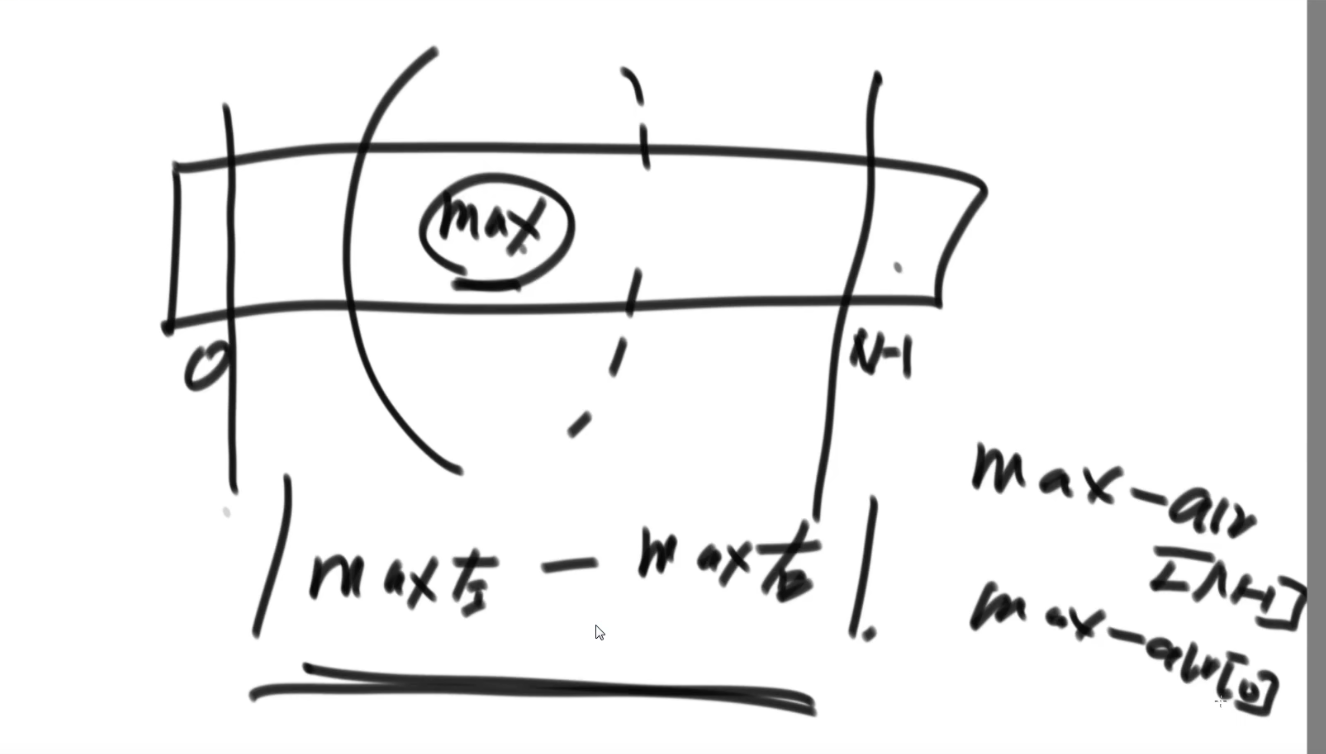 max
0
N-1
|max左 - max右|.
max-arr
[N-1]
max-arr[0]